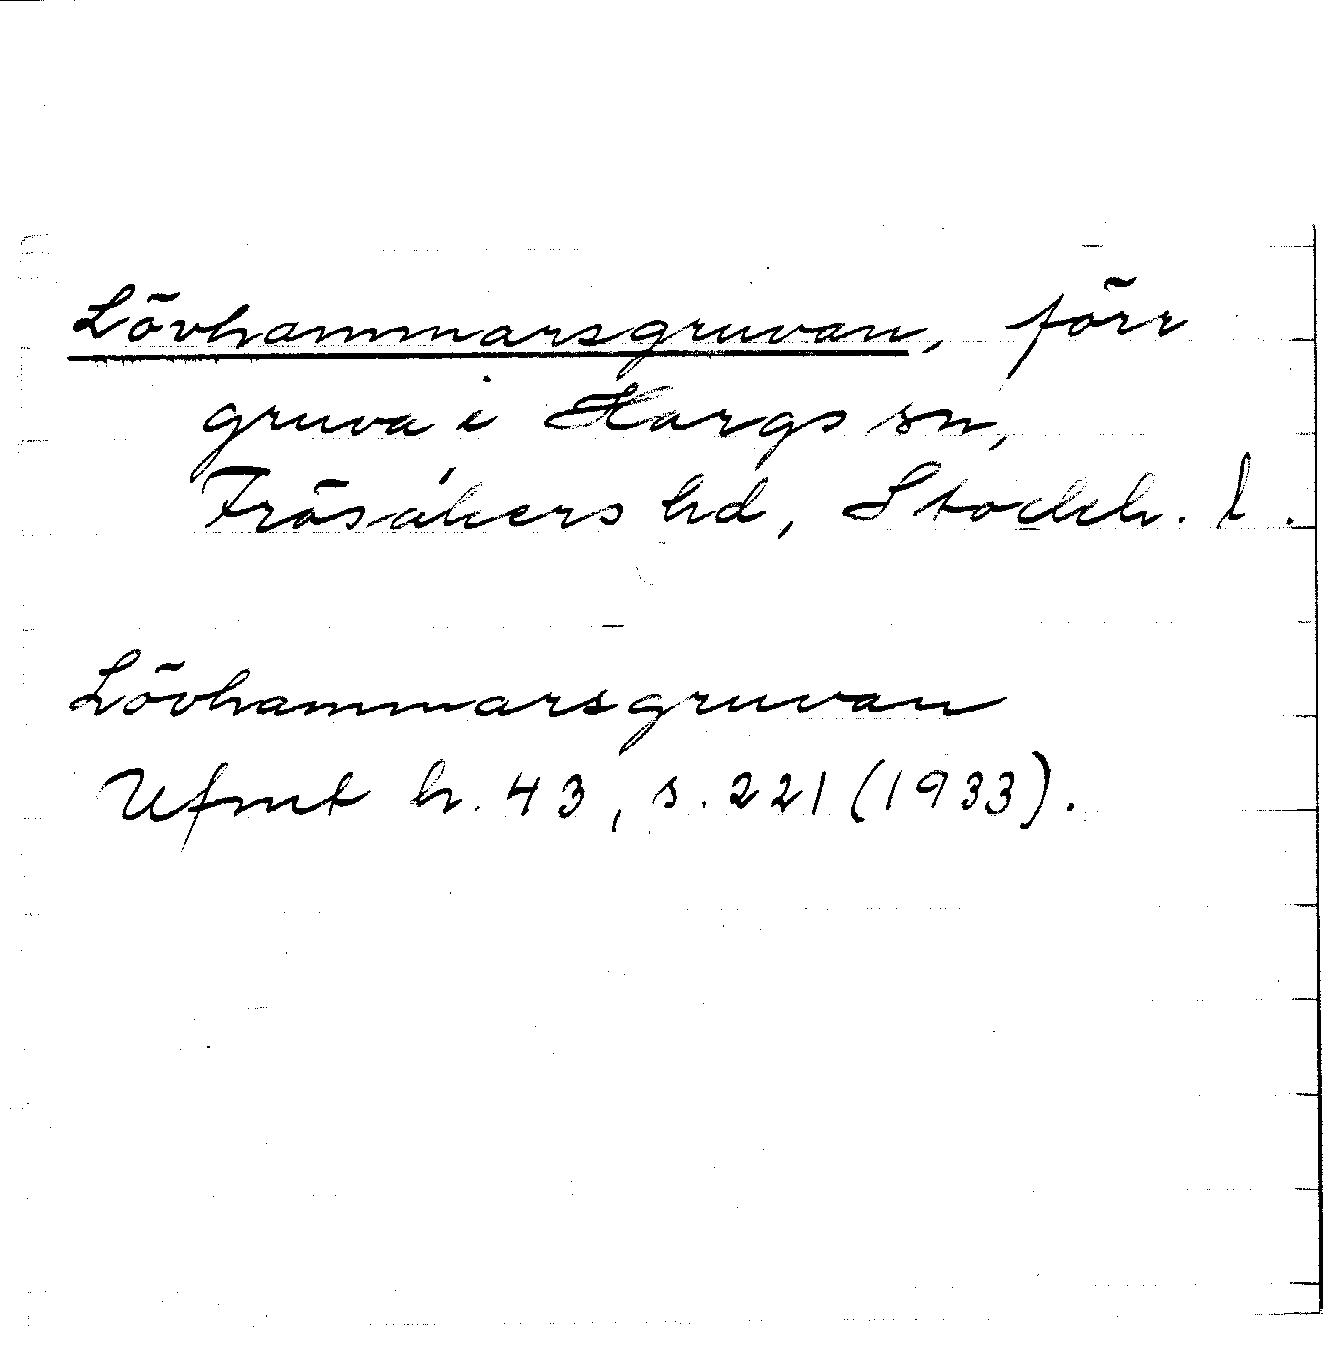 Lövhammarsgruvan, förr
gruva i Hargs sn,
Frösåkers hd, Stockh. l.
Lövhammarsgruvan
Ufmt h. 43, s. 221 (1933).